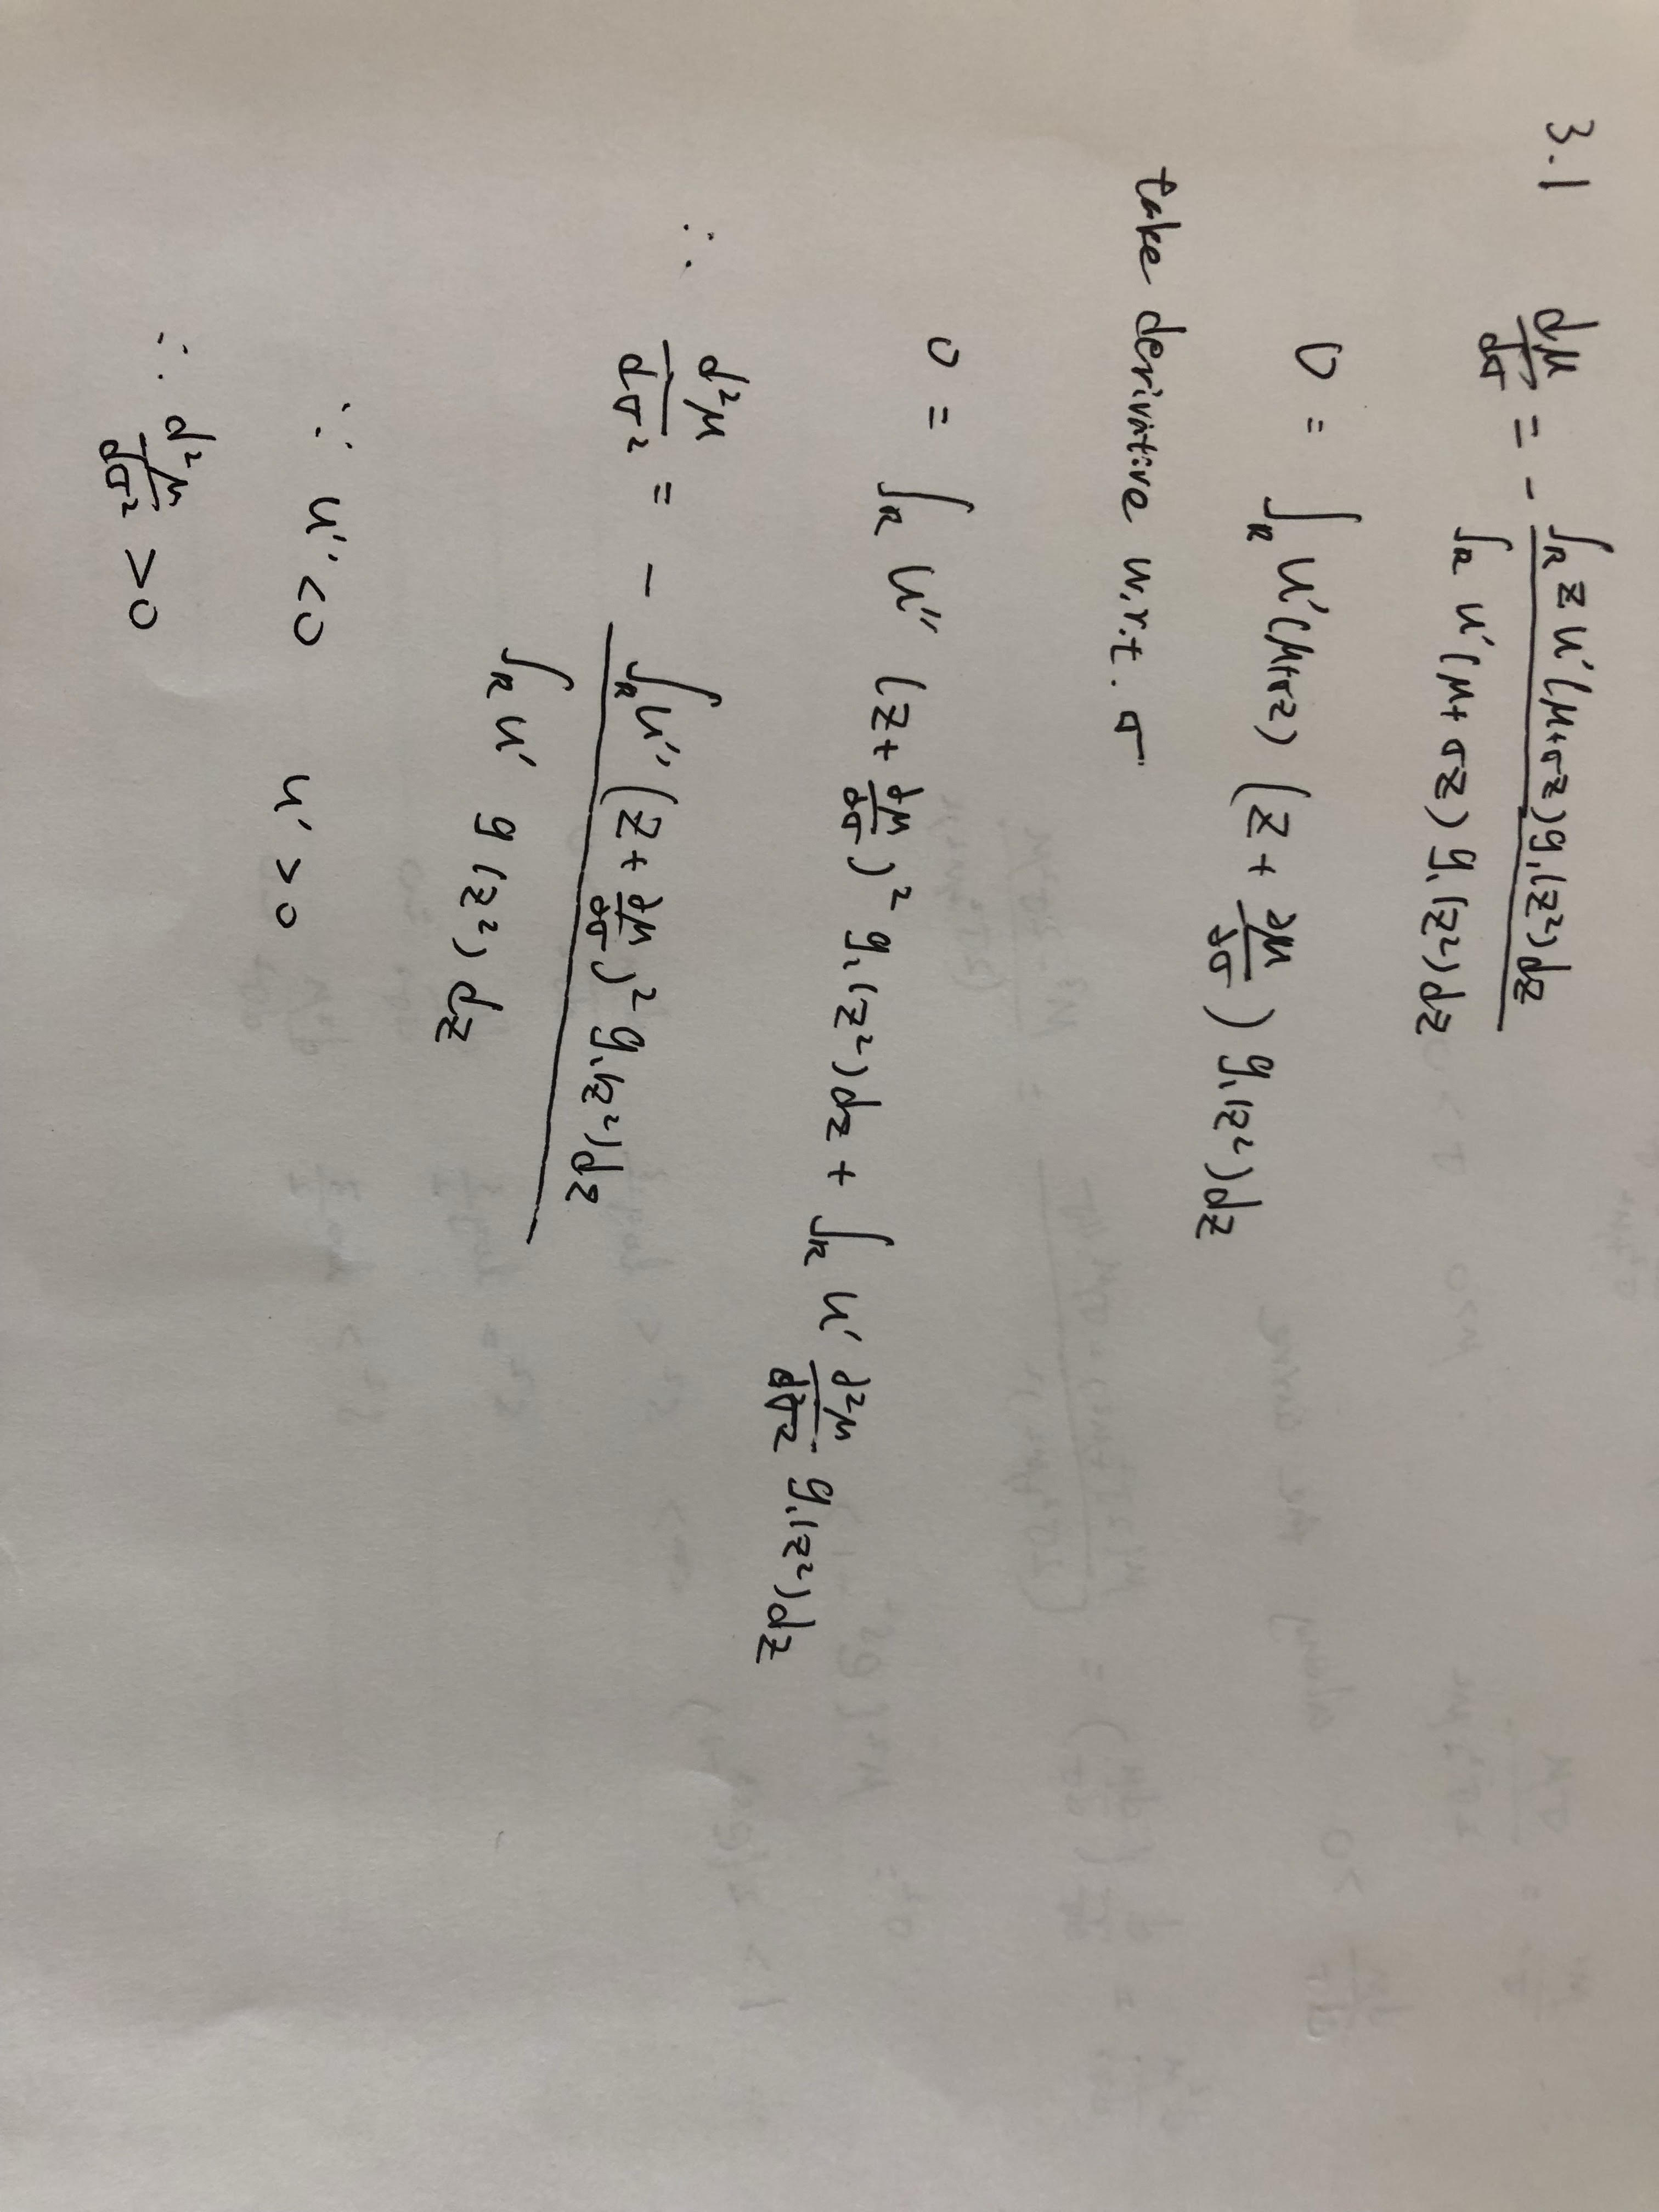 3.1 dμ/dσ = - ∫_R z u'(μ+σz) g₁(z²)dz / ∫_R u'(μ+σz) g₁(z²)dz
0 = ∫_R u'(μ+σz) (z + ∂μ/∂σ) g₁(z²)dz
take derivative w.r.t. σ
0 = ∫_R u'' (z + dμ/dσ)² g₁(z²)dz + ∫_R u' d²μ/dσ² g₁(z²)dz
∴ d²μ/dσ² = - ∫_R u'' (z + dμ/dσ)² g₁(z²)dz / ∫_R u' g(z²)dz
∵ u'' < 0 u' > 0
∴ d²μ/dσ² > 0